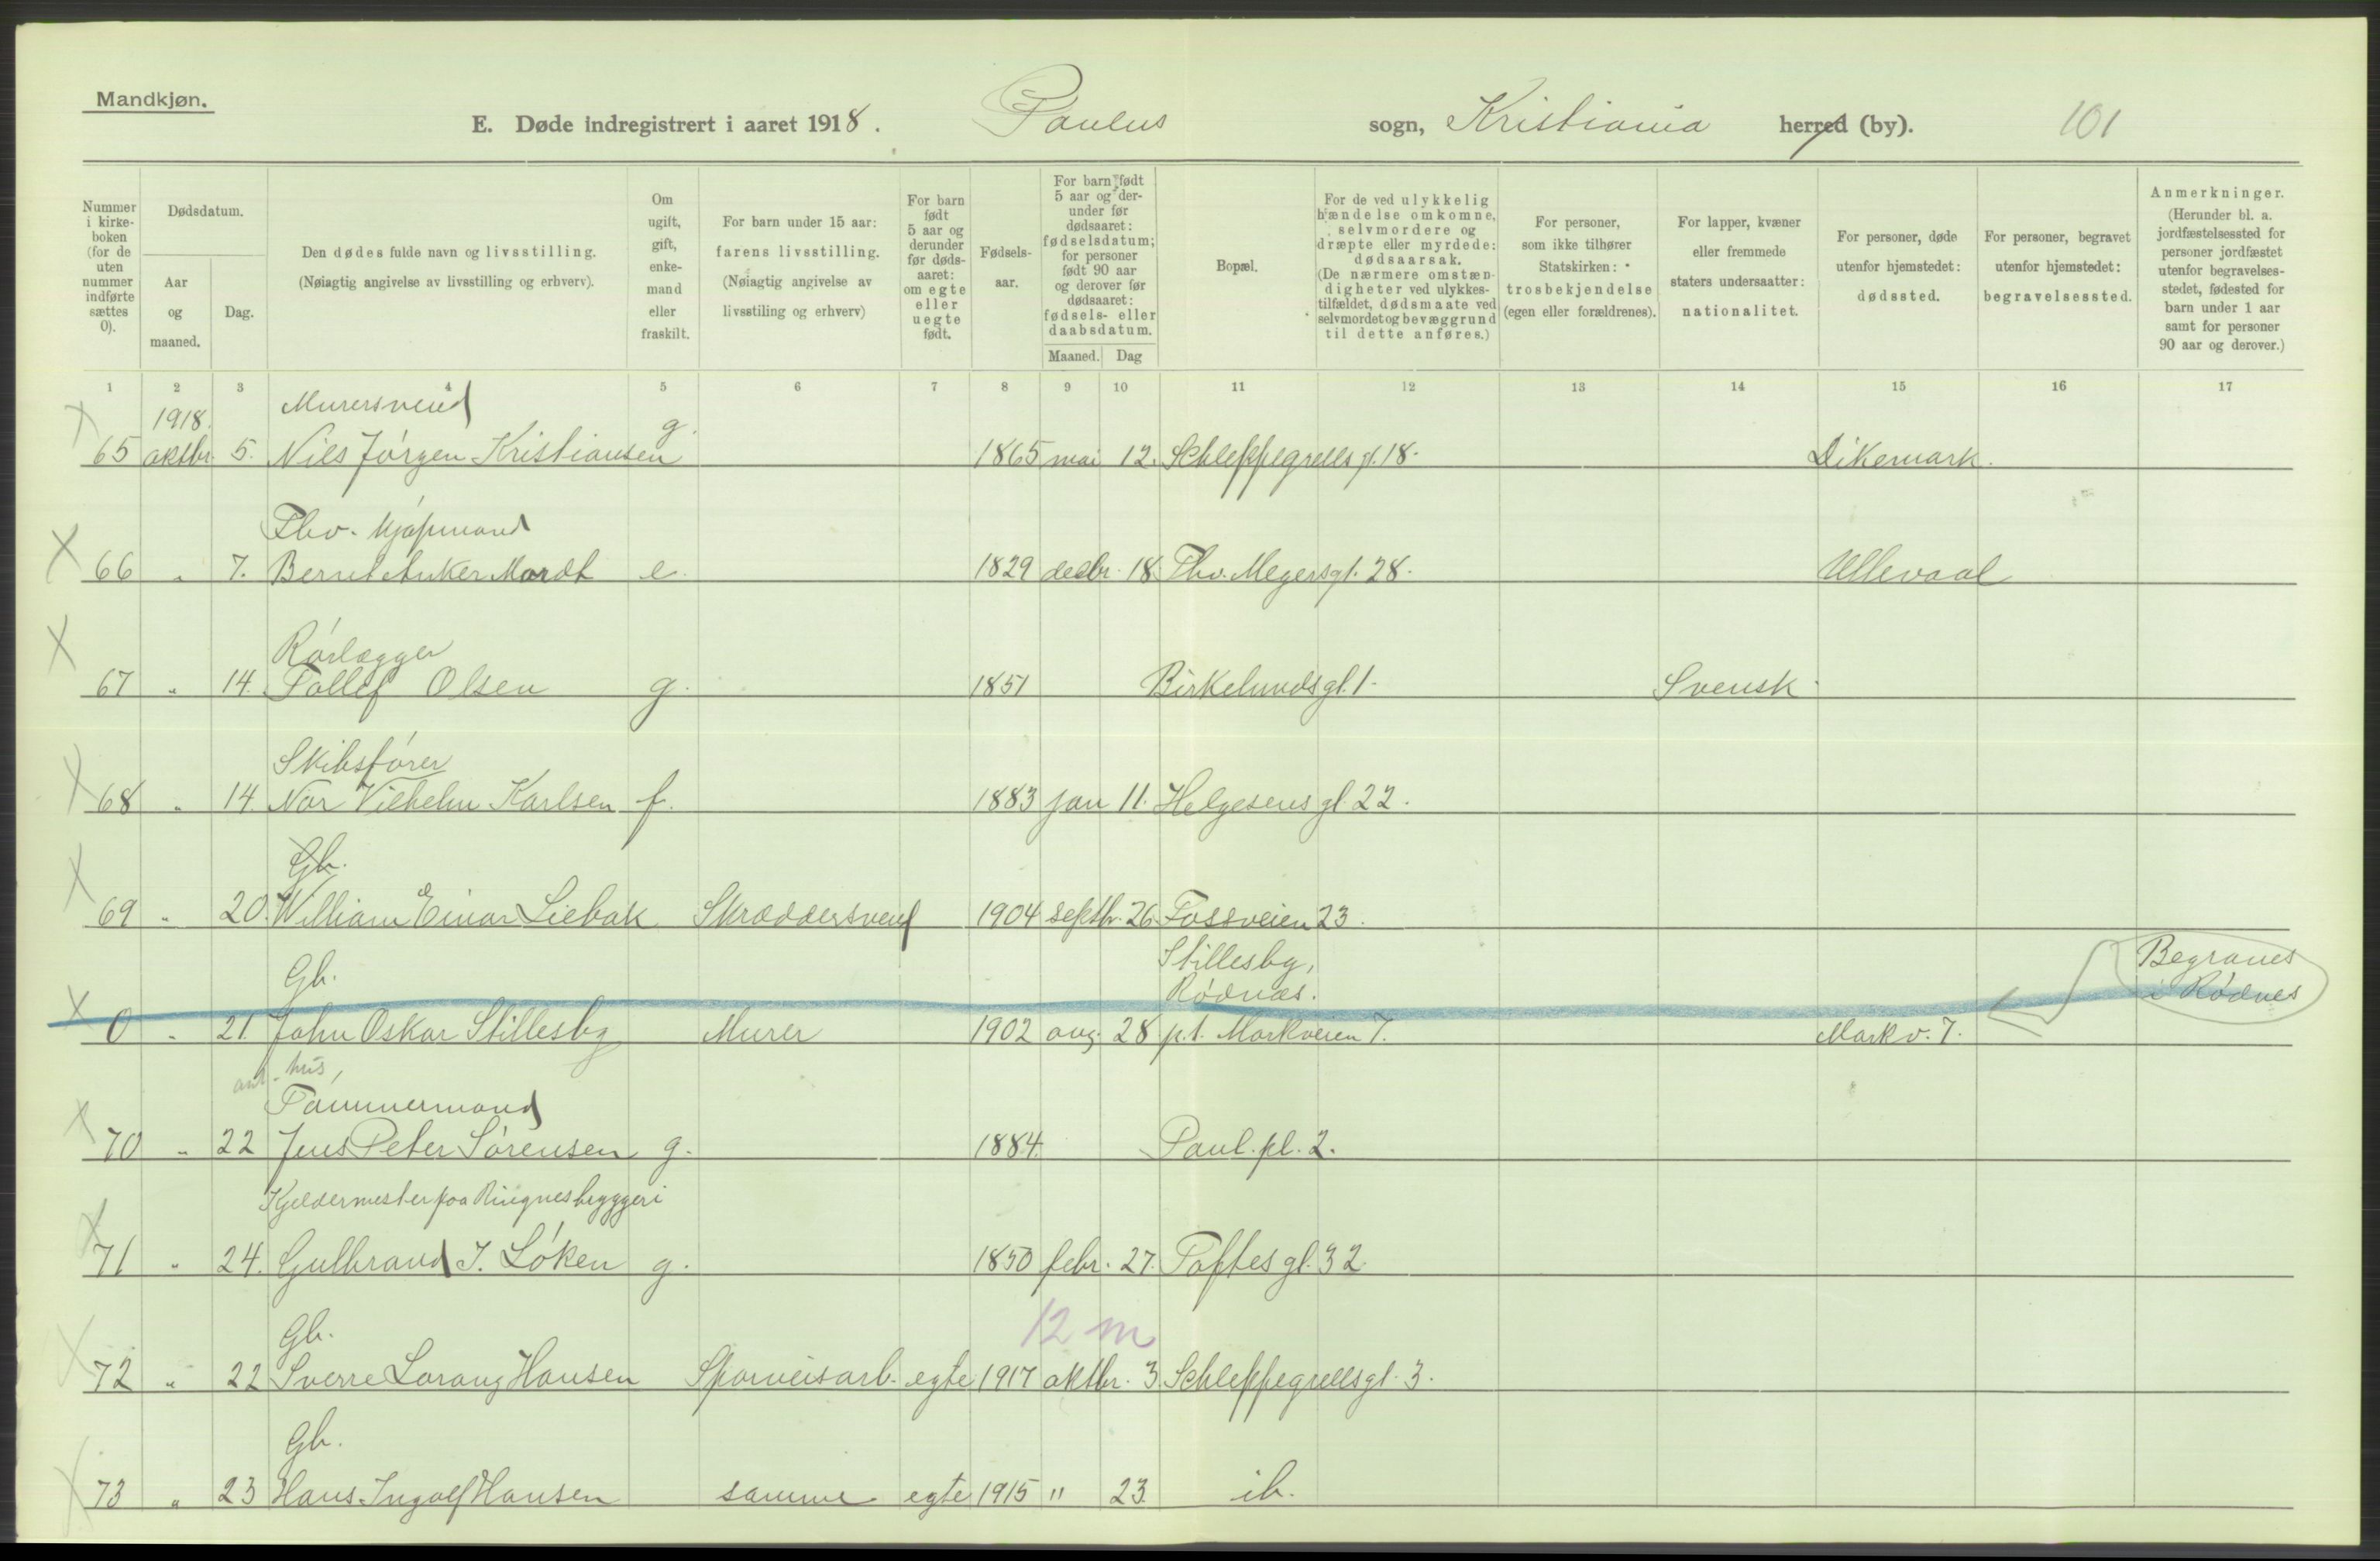 Mandkjøn.
E. Døde indregistrert i aaret 1918. Paulus sogn, Kristiania herred (by). 101
Nummer i kirke-boken (for de uten nummer indførte sættes 0).
Dødsdatum.
Aar og maaned.
Dag.
Den dødes fulde navn og livsstilling.
(Nøiagtig angivelse av livsstilling og erhverv).
Om ugift, gift, enke-mand eller fraskilt.
For barn under 15 aar: farens livsstilling.
(Nøiagtig angivelse av livsstiling og erhverv)
For barn født 5 aar og derunder før døds-aaret: om egte eller uegte født.
Fødsels-aar.
For barn født 5 aar og der-under før dødsaaret: fødselsdatum; for personer født 90 aar og derover før dødsaaret: fødsels- eller daabsdatum.
Maaned. Dag
Bopæl.
For de ved ulykkelig hændelse omkomne, selvmordere og dræpte eller myrdede: dødsaarsak.
(De nærmere omstæn-digheter ved ulykkes-tilfældet, dødsmaate ved selvmordet og bevæggrund til dette anføres.)
For personer, som ikke tilhører Statskirken: trosbekjendelse (egen eller forældrenes).
For lapper, kvæner eller fremmede staters undersaatter: nationalitet.
For personer, døde utenfor hjemstedet: dødssted.
For personer, begravet utenfor hjemstedet: begravelsessted.
Anmerkninger.
(Herunder bl. a. jordfæstelsessted for personer jordfæstet utenfor begravelses-stedet, fødested for barn under 1 aar samt for personer 90 aar og derover.)
1 2 3 4 5 6 7 8 9 10 11 12 13 14 15 16 17
1918. Murersvend
65 oktbr. 5. Niels Jörgen Kristiansen g. 1865 mai 12. Schleppegrells gt. 18. Dikemark.
Fhv. Kjøpmand
66 " 7. Bernt Anker Mordt e. 1829 decbr. 18. Thv. Meyersgt. 28. Ullevaal
Rörlægger
67 " 14. Tollef Olsen g. 1851 Birkelundsgt. 1. Svensk.
Skibsförer
68 " 14. Nor Vilhelm Karlsen f. 1883 jan 11. Helgesens gt. 22.
Gb.
69 " 20. William Einar Liebak Skræddersvend 1904 septbr. 26. Fossveien 23.
Stillesby,
Rødnæs.
Begraves
i Rødnes
Gb.
0 " 21. John Oskar Stillesby Murer 1902 aug. 28 p.t. Markveien 7. Markv. 7.
hus,
Tömmermand
70 " 22 Jens Peter Sörensen g. 1884. Paul. pl. 2.
Kjeldermester paa Ringnes bryggeri
71 " 24. Gulbrand J. Löken g. 1850 febr. 27. Toftes gt. 32.
12 m
Gb.
72 " 22 Sverre Lorang Hansen Sporveisarb. egte 1917 oktbr. 3. Schleppegrellsgt. 3.
Gb.
73 " 23 Hans Ingolf Hansen samme egte 1915 " 23. ib.